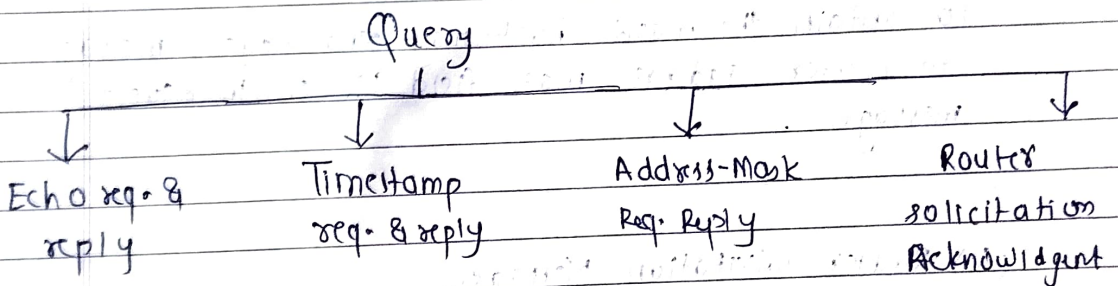 Query
Echo req. &
reply
Timestamp
req. & reply
Address-Mask
Req. Reply
Router
solicitation
Acknowldgent